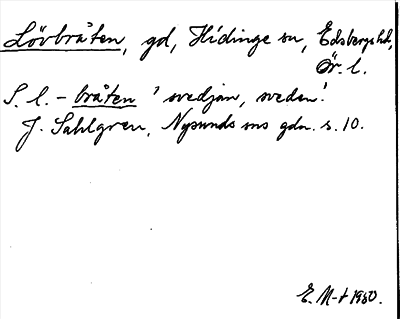 Lövbråten, gd, Hidinge sn, Edsbergs hd,
Ör. l.
S. l. - bråten 'svedjan, sveden'.
J. Sahlgren, Nysunds sns gdn. s. 10.
E. M-t 1960.